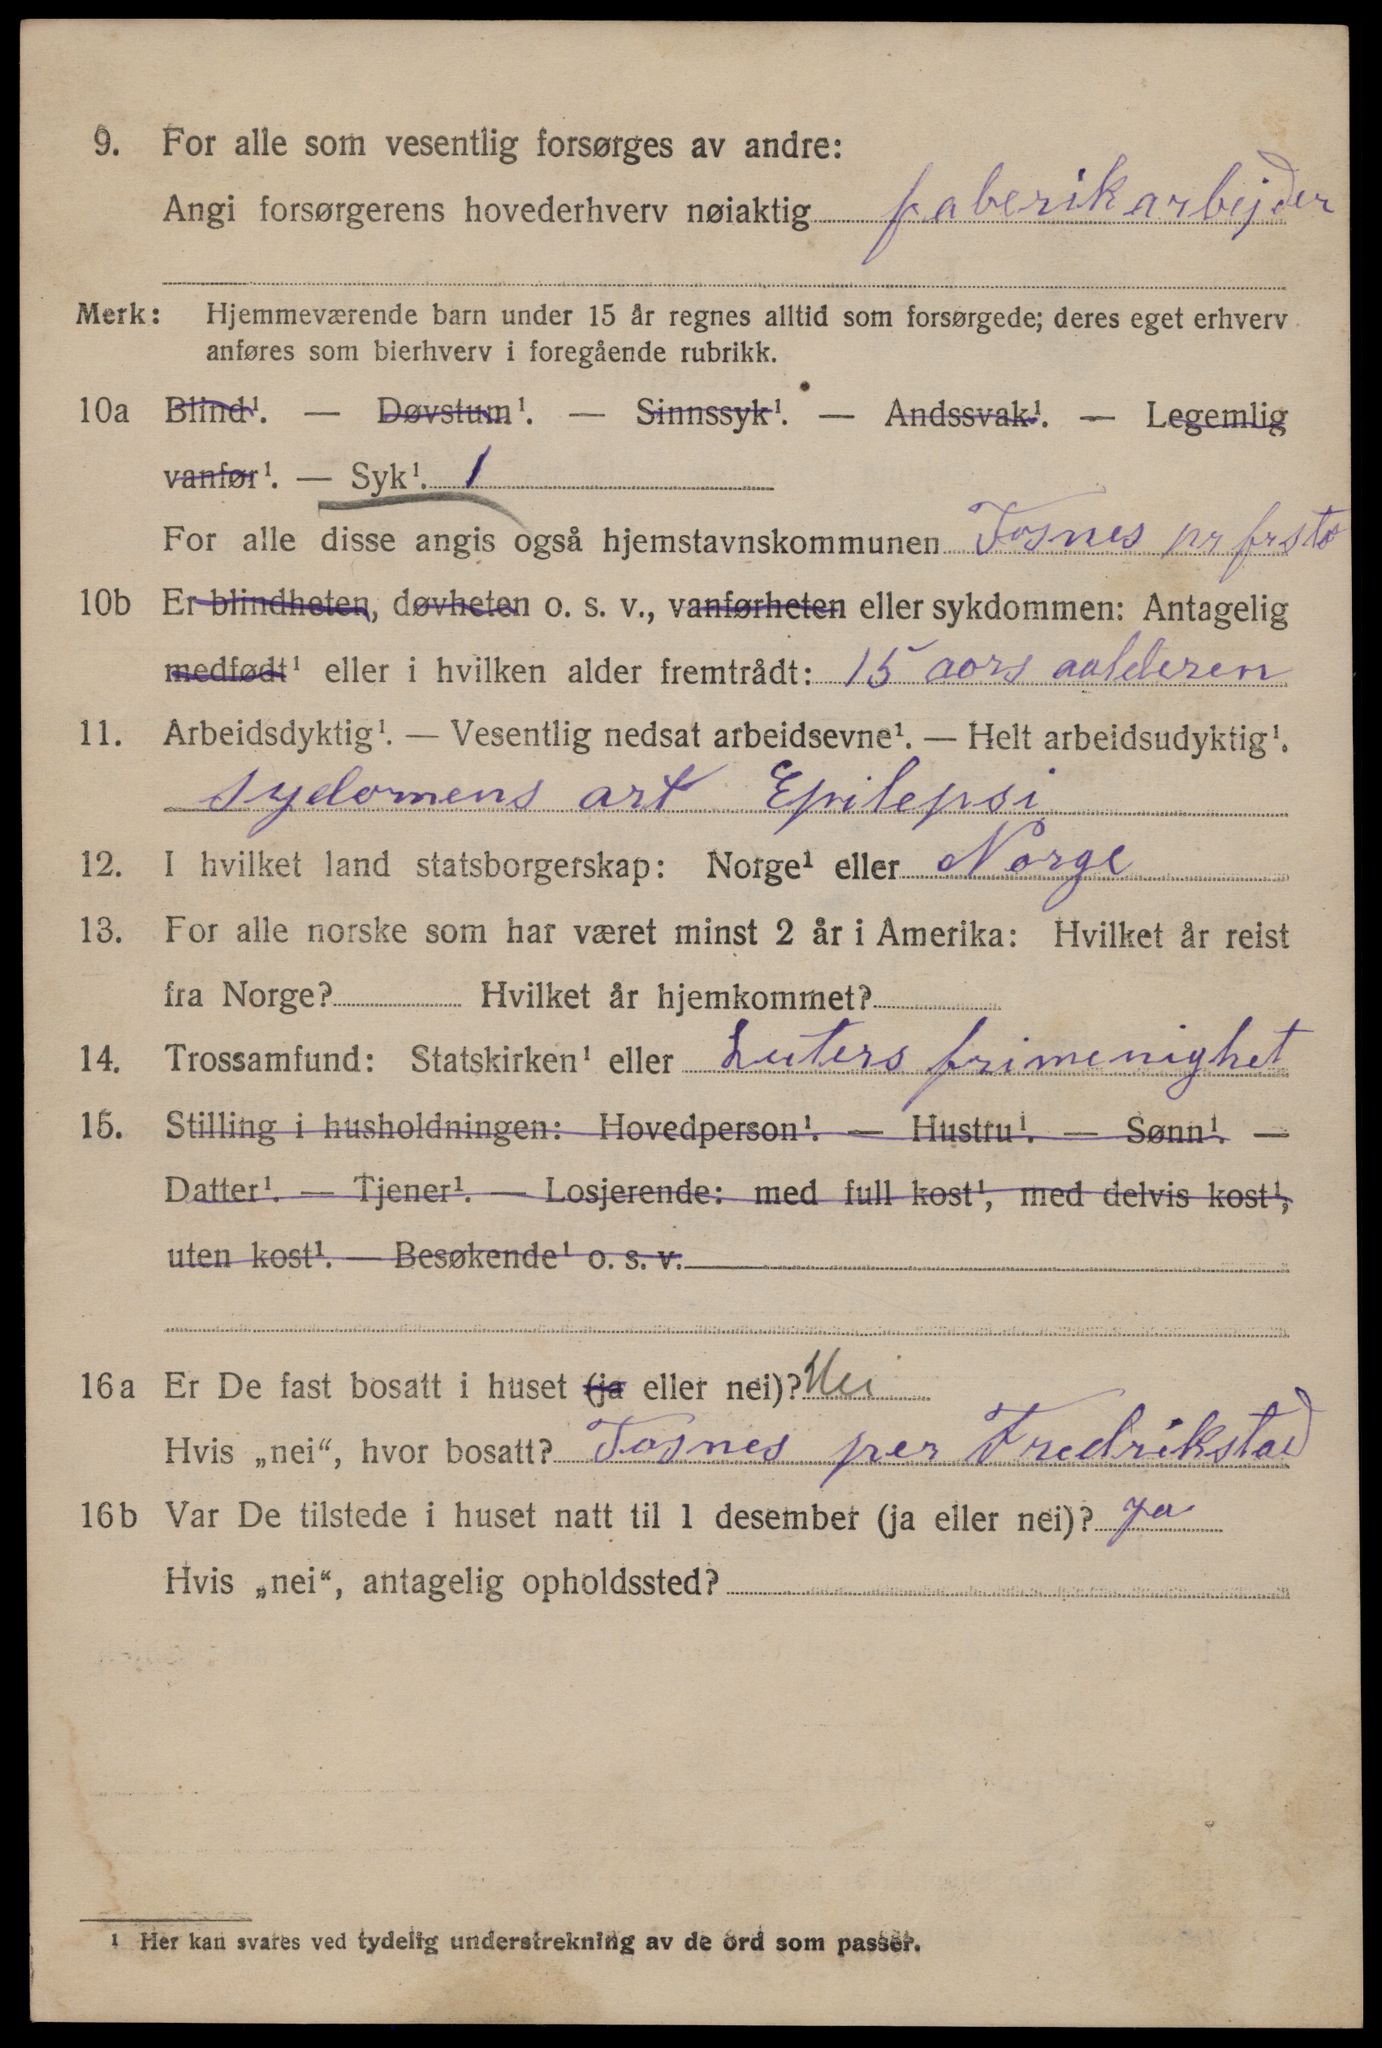 9. For alle som vesentlig forsørges av andre:
Angi forsørgerens hovederhverv nøiaktig faberikarbejder
Merk: Hjemmeværende barn under 15 år regnes alltid som forsørgede; deres eget erhverv
anføres som bierhverv i foregående rubrikk.
10a Blind¹. — Døvstum¹. — Sinnssyk¹. — Andssvak¹. — Legemlig
vanfør¹. — Syk¹. 1
For alle disse angis også hjemstavnskommunen Tosnes pr frsta
10b Er blindheten, døvheten o. s. v., vanførheten eller sykdommen: Antagelig
medfødt¹ eller i hvilken alder fremtrådt: 15 aors aalderen
11. Arbeidsdyktig¹. — Vesentlig nedsat arbeidsevne¹. — Helt arbeidsudyktig¹.
sydomens art Epilepsi
12. I hvilket land statsborgerskap: Norge¹ eller Norge
13. For alle norske som har været minst 2 år i Amerika: Hvilket år reist
fra Norge? Hvilket år hjemkommet?
14. Trossamfund: Statskirken¹ eller Luters frimenighet
15. Stilling i husholdningen: Hovedperson¹. — Hustru¹. — Sønn¹. —
Datter¹. — Tjener¹. — Losjerende: med full kost¹, med delvis kost¹,
uten kost¹. — Besøkende¹ o. s. v.
16a Er De fast bosatt i huset (ja eller nei)? Nei
Hvis „nei“, hvor bosatt? Tosnes per Fredrikstad
16b Var De tilstede i huset natt til 1 desember (ja eller nei)? ja
Hvis „nei“, antagelig opholdssted?
1 Her kan svares ved tydelig understrekning av de ord som passer.